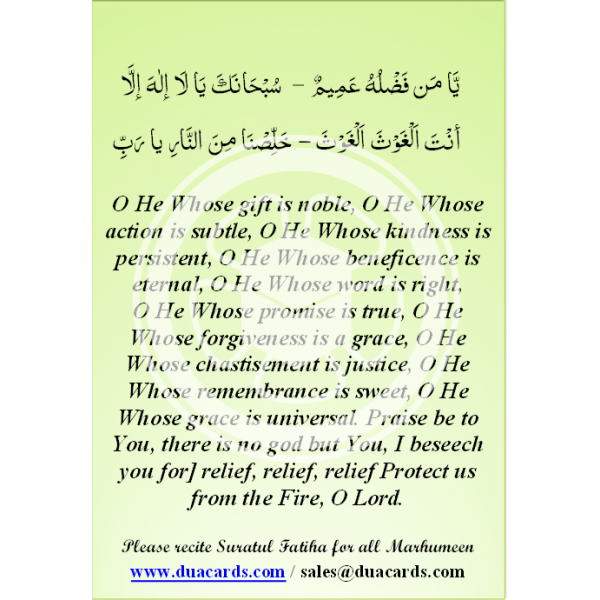 يَّا مَن فَضْلُهُ عَمِيمٌ – سُبْحَانَكَ يَا لَا إِلٰهَ إِلَّا
أَنْتَ اَلْغَوْثَ اَلْغَوْثَ – خَلِّصْنَا مِنَ النَّارِ يا رَبِّ
O He Whose gift is noble, O He Whose
action is subtle, O He Whose kindness is
persistent, O He Whose beneficence is
eternal, O He Whose word is right,
O He Whose promise is true, O He
Whose forgiveness is a grace, O He
Whose chastisement is justice, O He
Whose remembrance is sweet, O He
Whose grace is universal. Praise be to
You, there is no god but You, I beseech
you for] relief, relief, relief Protect us
from the Fire, O Lord.
Please recite Suratul Fatiha for all Marhumeen
www.duacards.com / sales@duacards.com